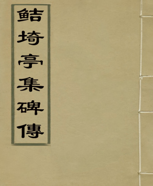 鮚埼亭集碑傳